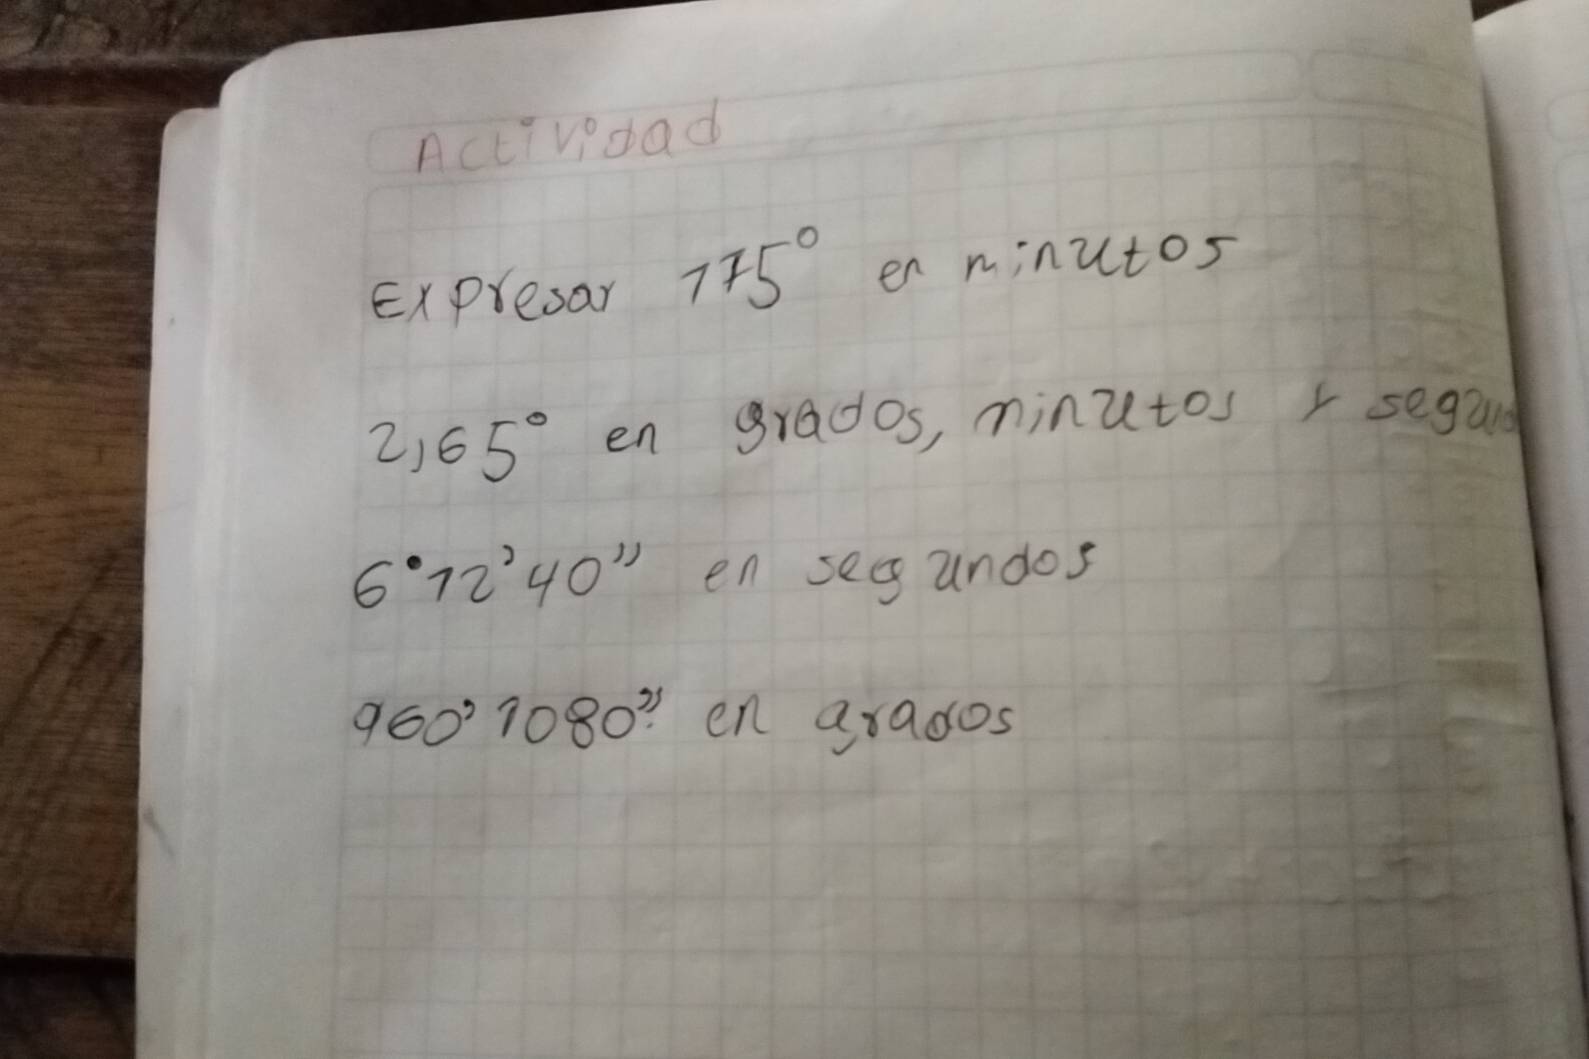 Actividad
Expresar 175° en minutos
2,65° en grados, minutos y
6°12'40" en segundos
960' 1080" en grados